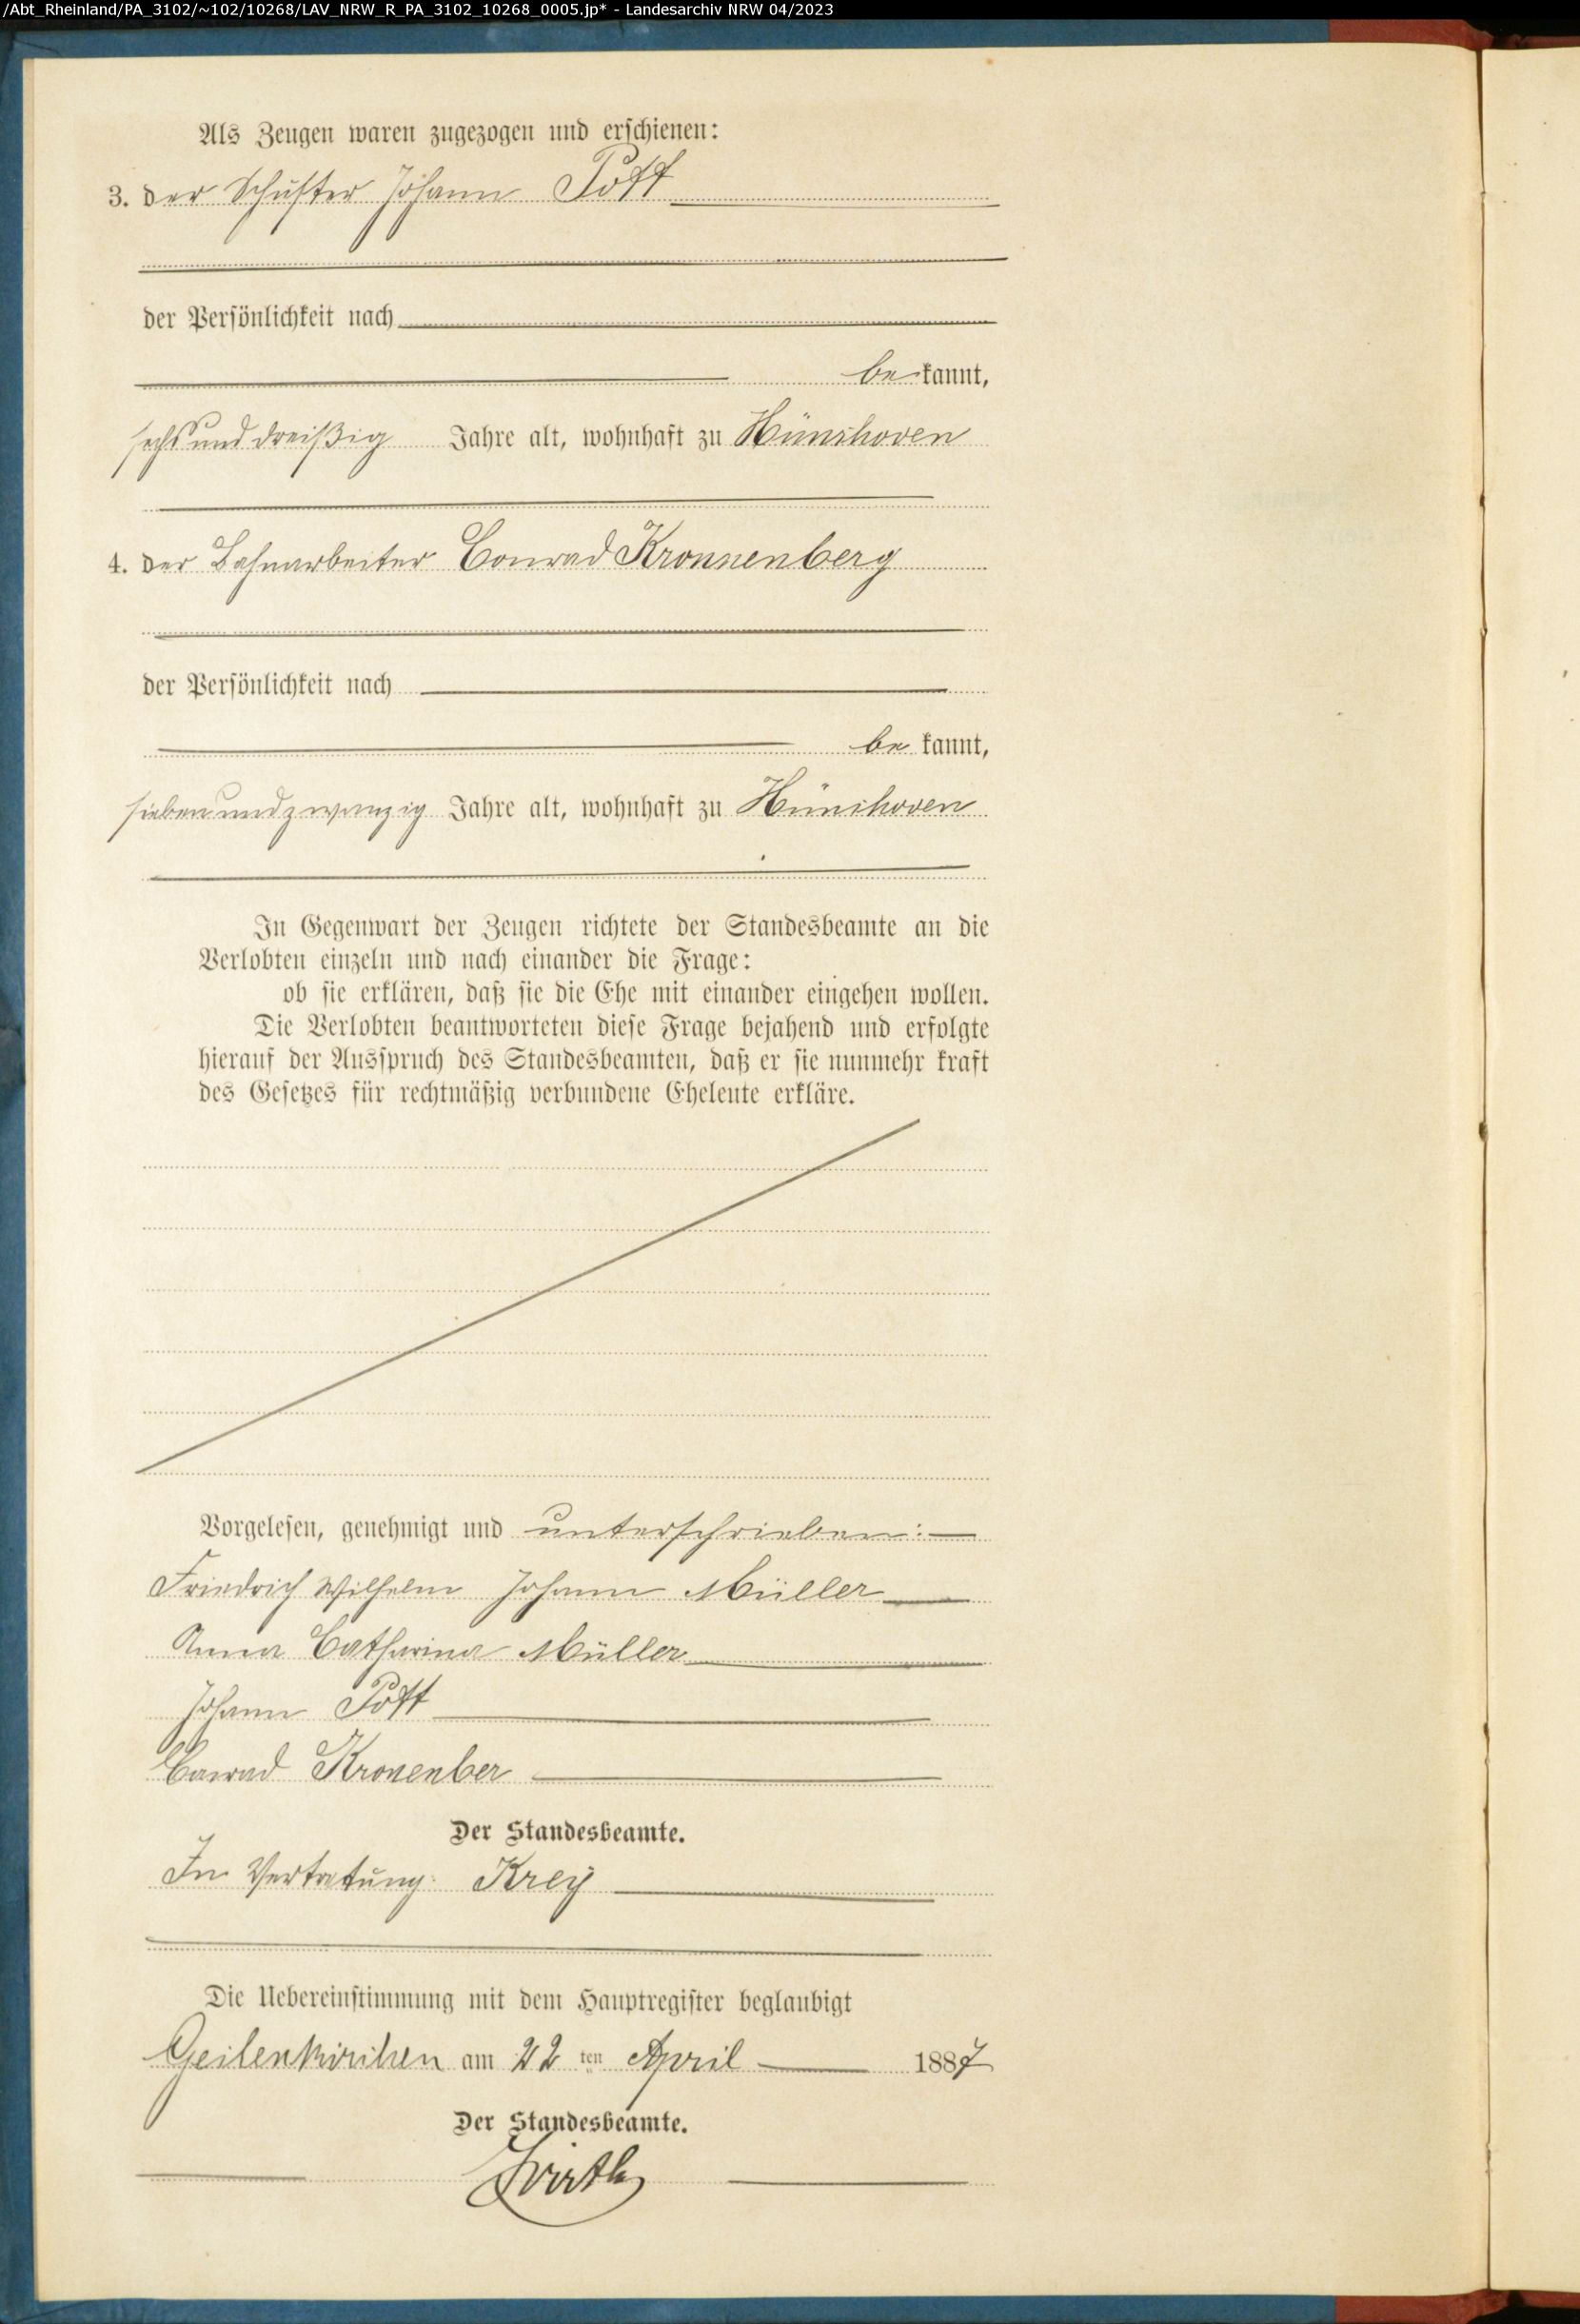 /Abt_Rheinland/PA_3102/~102/10268/LAV_NRW_R_PA_3102_10268_0005.jp* - Landesarchiv NRW 04/2023
Als Zeugen waren zugezogen und erschienen:
3. der Schuster Johann Pott
der Persönlichkeit nach
bekannt,
sechs und dreißig Jahre alt, wohnhaft zu Hünshoven
4. der Bahnarbeiter Conrad Kronnenberg
der Persönlichkeit nach
be kannt,
siebenundzwanzig Jahre alt, wohnhaft zu Hünshoven
In Gegenwart der Zeugen richtete der Standesbeamte an die
Verlobten einzeln und nach einander die Frage:
ob sie erklären, daß sie die Ehe mit einander eingehen wollen.
Die Verlobten beantworteten diese Frage bejahend und erfolgte
hierauf der Ausspruch des Standesbeamten, daß er sie nunmehr kraft
des Gesetzes für rechtmäßig verbundene Eheleute erkläre.
Vorgelesen, genehmigt und unterschrieben:
Friedrich Wilhelm Johann Müller
Anna Catharina Müller
Johann Pott
Conrad Kronenber
Der Standesbeamte.
In Vertretung: Krey
Die Uebereinstimmung mit dem Hauptregister beglaubigt
Geilenkirchen am 22 ten April 1887
Der Standesbeamte.